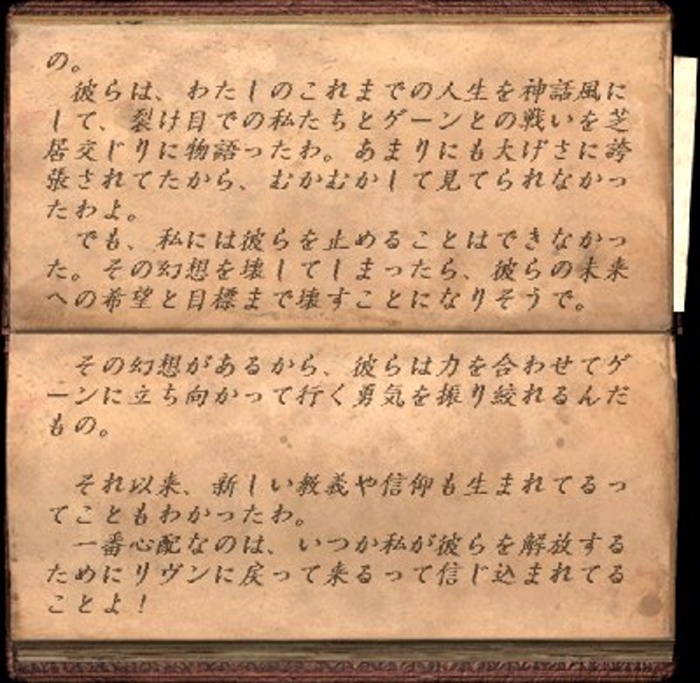 の。
　彼らは、わたしのこれまでの人生を神話風に
して、裂け目での私たちとゲーンとの戦いを芝
居交じりに物語ったわ。あまりにも大げさに誇
張されてたから、むかむかして見てられなかっ
たわよ。
　でも、私には彼らを止めることはできなかっ
た。その幻想を壊してしまったら、彼らの未来
への希望と目標まで壊すことになりそうで。
　その幻想があるから、彼らは力を合わせてゲ
ーンに立ち向かって行く勇気を振り絞れるんだ
もの。
　それ以来、新しい教義や信仰も生まれてるっ
てこともわかったわ。
　一番心配なのは、いつか私が彼らを解放する
ためにリヴンに戻って来るって信じ込まれてる
ことよ！